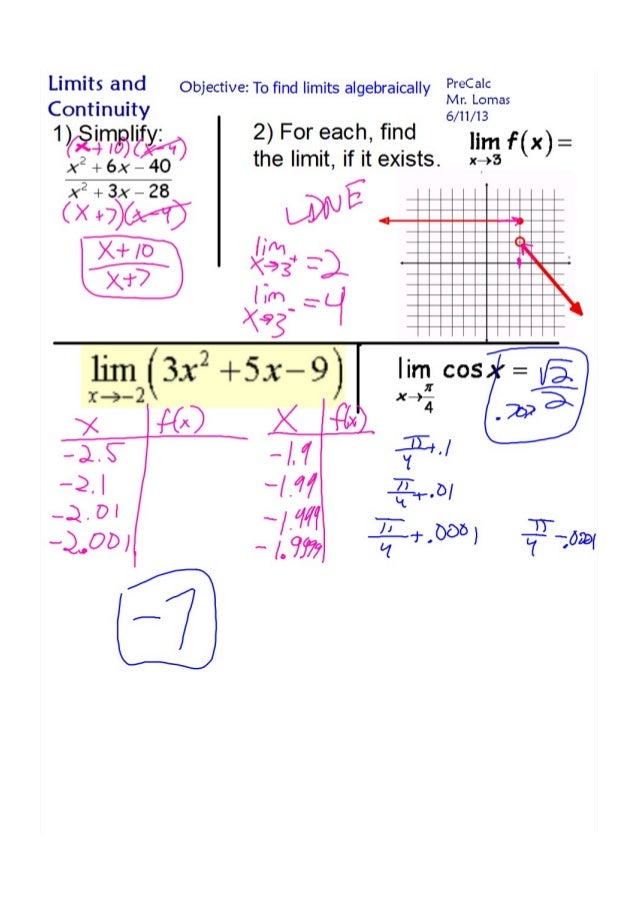 Limits and Continuity
Objective: To find limits algebraically
PreCalc
Mr. Lomas
6/11/13
1) Simplify:
(x+10)(x-4)
x² + 6x – 40
x² + 3x – 28
(x+7)(x-4)
x+10
x+7
2) For each, find
the limit, if it exists.
lim f(x) =
x→3
DNE
lim = 2
x→3⁺
lim = 4
x→3⁻
lim (3x² +5x–9)
x→–2
x f(x)
-2.5
-2.1
-2.01
-2.001
x f(x)
-1.9
-1.99
-1.999
-1.9999
-7
lim cos x = √2/2
x→π/4
.707
π/4 +.1
π/4 +.01
π/4 +.0001
π/4 -.0001